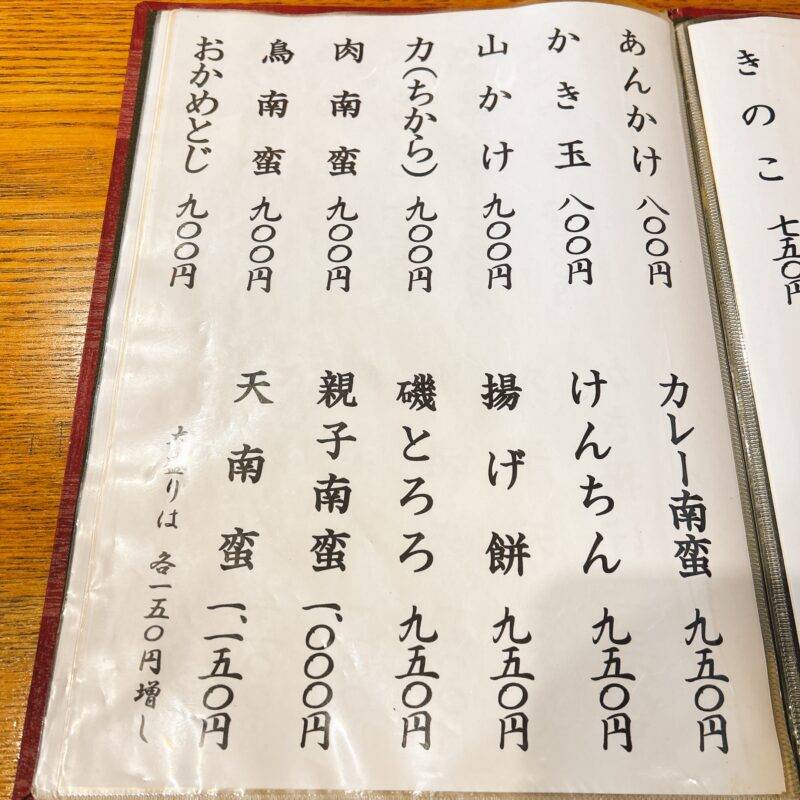 きのこ 七五〇円
あんかけ 八〇〇円
かき玉 八〇〇円
山かけ 九〇〇円
力(ちから) 九〇〇円
肉南蛮 九〇〇円
鳥南蛮 九〇〇円
おかめとじ 九〇〇円
カレー南蛮 九五〇円
けんちん 九五〇円
揚げ餅 九五〇円
磯とろろ 九五〇円
親子南蛮 一、〇〇〇円
天南蛮 一、一五〇円
大盛りは 各一五〇円増し